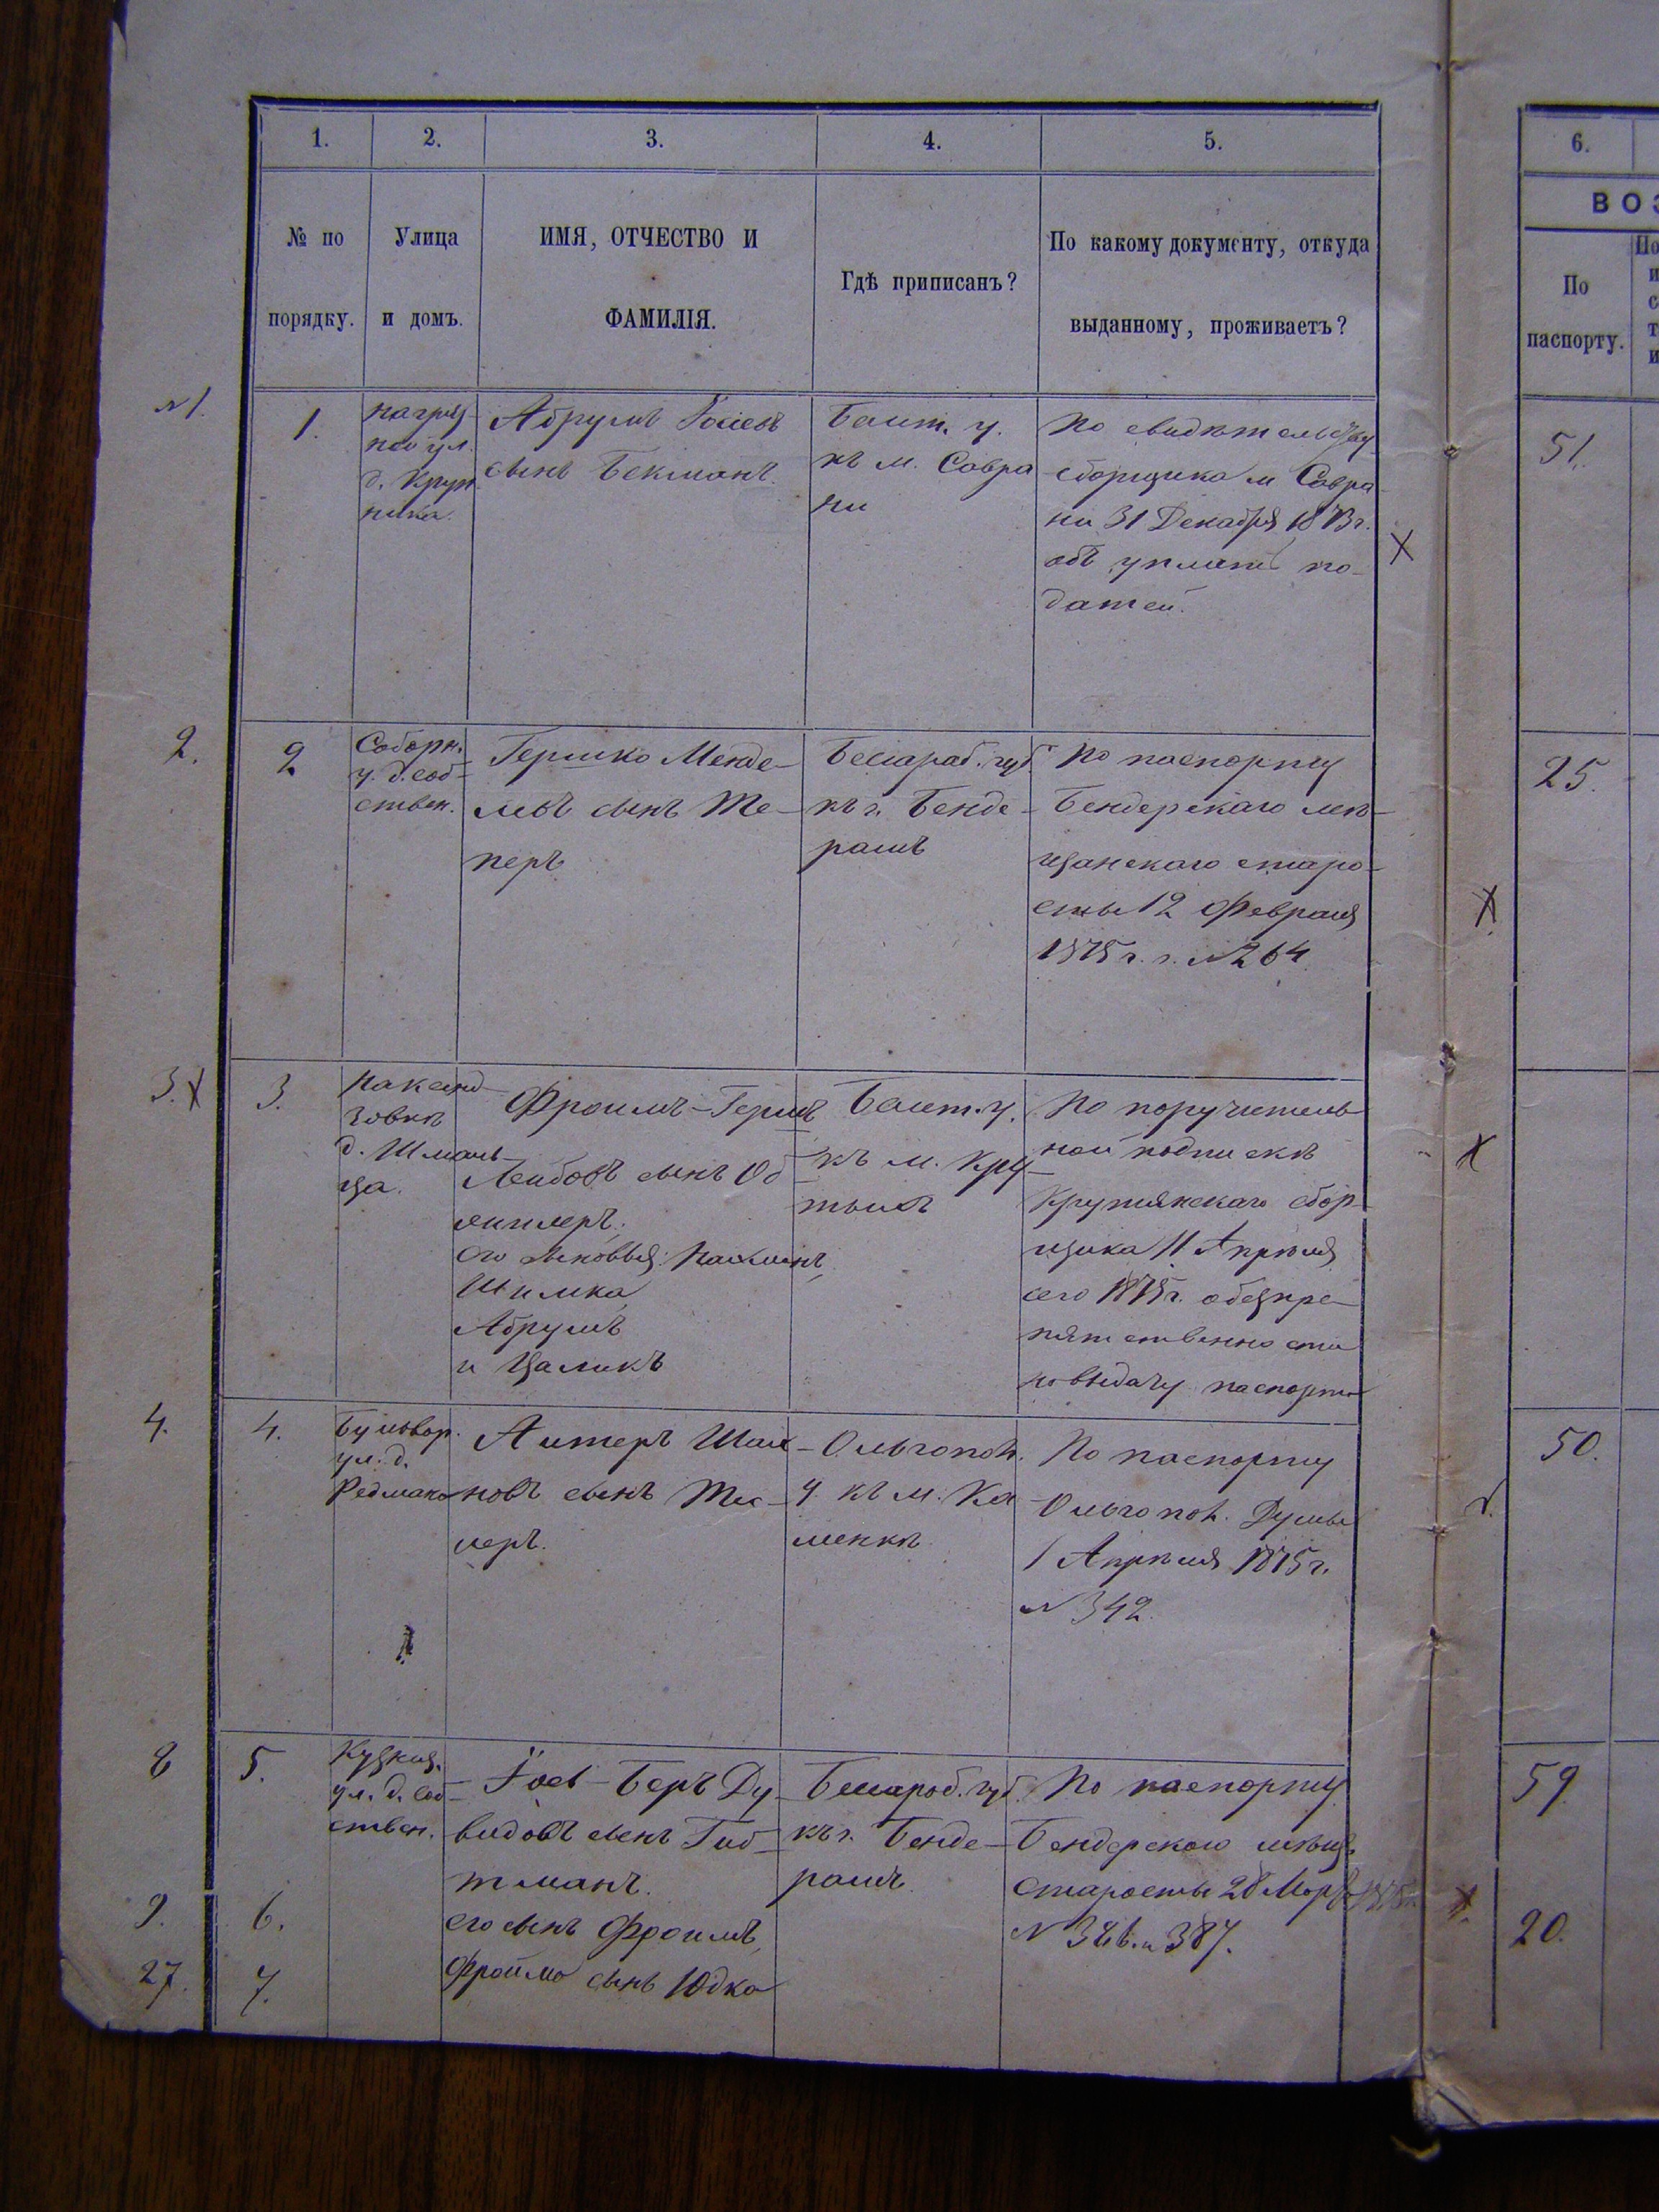 1.
2.
3.
4.
5.
6.
ВОЗ
№ по
порядку.
Улица
и домъ.
ИМЯ, ОТЧЕСТВО И
ФАМИЛІЯ.
Гдѣ приписанъ?
По какому документу, откуда
выданному, проживаетъ?
По
паспорту.
№ 1.
1.
ул.
д. Круп
ника.
Абрумъ Іосіевъ
сынъ Бекманъ.
Балт. у.
къ м. Савра
ни
По свидѣтельству
сборщика м Савра
ни 31 Декабря 1873 г.
объ уплатѣ по-
датей.
51.
2.
2
Соборн.
у. д. соб-
ствен.
Гершко Менде-
левъ сынъ Те-
перъ
Бессараб. губ.
къ г. Бенде-
рамъ
По паспорту
Бендерскаго мѣ-
щанскаго старо-
сты 12 Февраля
1875 г. г. № 264
25.
3.
3.
д. Шмаль-
ца.
Фроимъ-Гершъ
Лейбовъ сынъ Об
его сыновья: Нахманъ,
Шимка
Абрумъ
и Цаликъ
Балт. у.
къ м. Кру-
тымъ
По поручитель-
ной подпискѣ
Крутянскаго сбор-
щика 11 Апрѣля
сего 1875 г. о безпре-
пятственности
на выдачу паспорта
4.
4.
Бульвар.
ул. д.
Редмана
Алтеръ Шаи-
новъ сынъ Тес-
леръ.
Ольгопол.
у. къ м. Ка
менкѣ
По паспорту
Ольгопол. Думы
1 Апрѣля 1875 г.
№ 342.
50.
8
5.
Кузнеч.
ул. д. соб-
ствен.
Іосъ-Беръ Ду-
видовъ сынъ Гит-
тманъ.
Бессараб. губ.
къ г. Бенде-
рамъ
По паспорту
Бендерскаго мѣщ.
старосты 28 Мар 1875
№ 386. и 387.
59.
9.
6.
его сынъ Фроимъ,
20.
27.
7.
Фроима сынъ Юдко